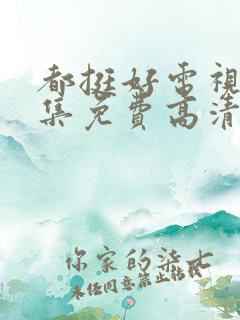 都挺好电視
集免費高清
你家的柒七
未经同意禁止转载